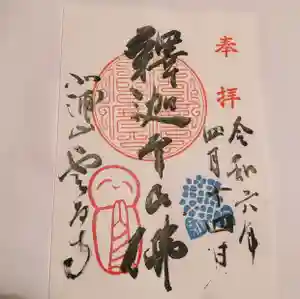 奉拝
令和六年
四月十四日
釋迦牟尼佛